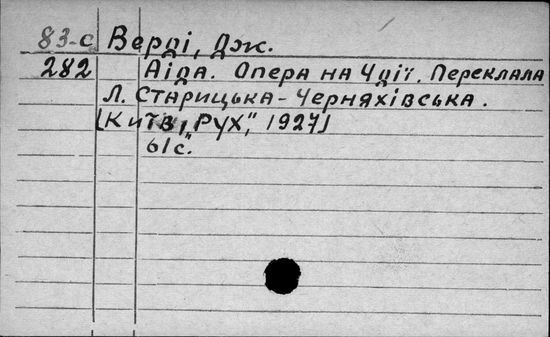 83-С Верді, Дж.
282 Аіда. Опера на 4 дії. Переклала
Л. Старицька-Черняхівська.
[Київ, „Рух", 1927]
61 с.